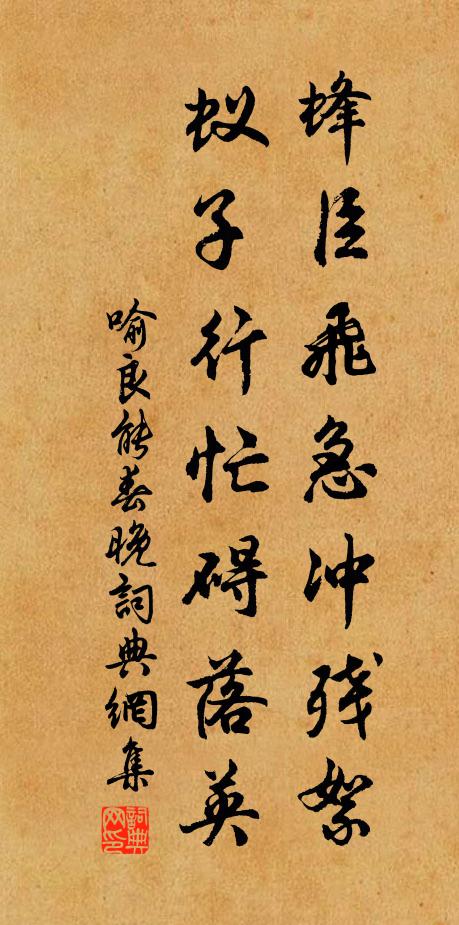 蜂臣飛急冲残絮
蚁子行忙碍落英
喻良能春晚詞典網集
詞典网印